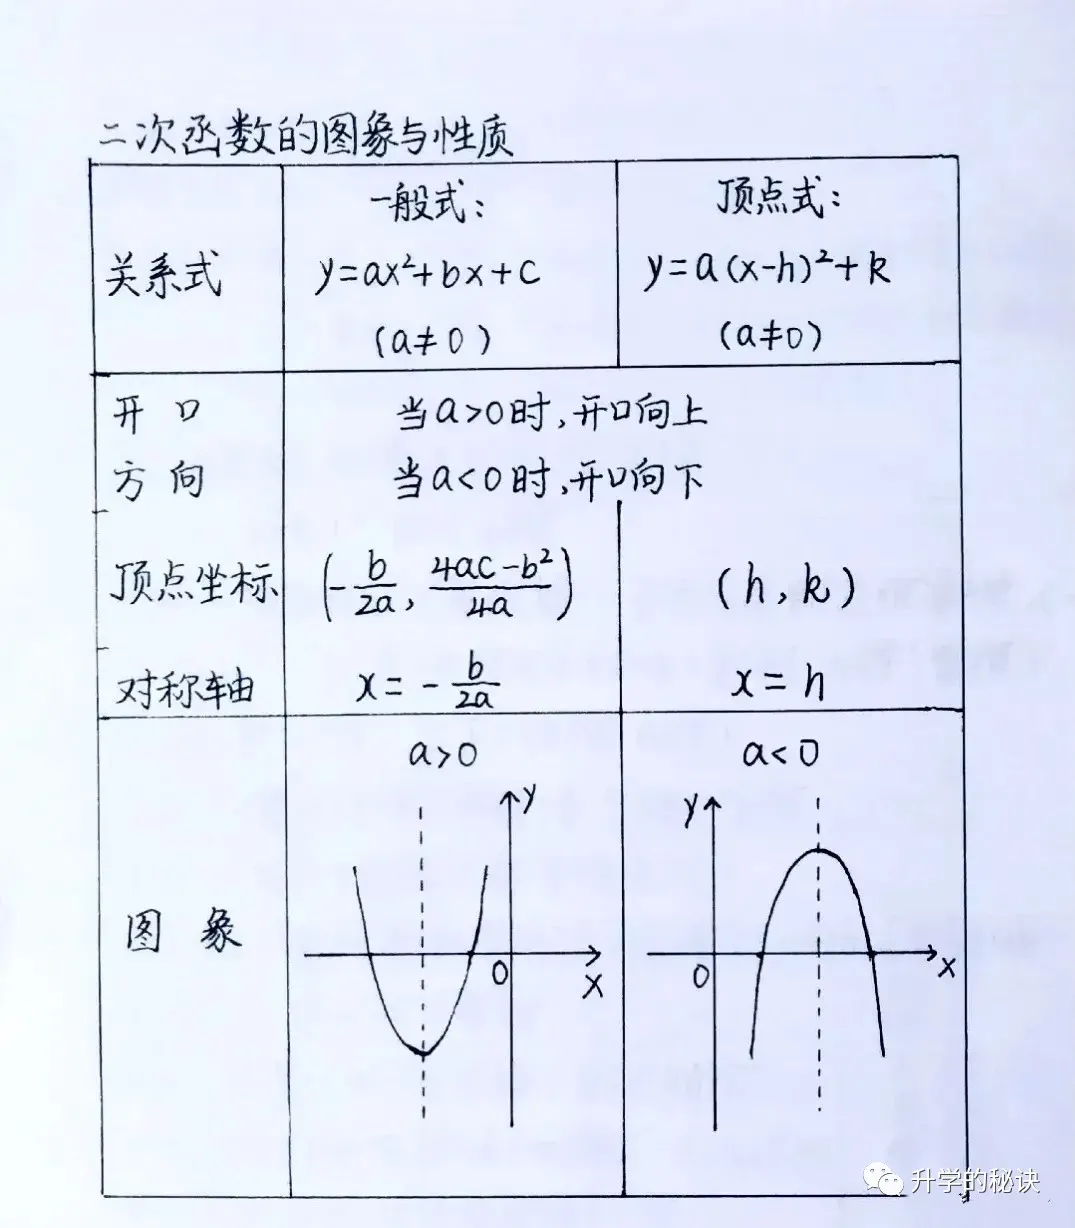 二次函数的图象与性质
关系式
一般式:
y=ax²+bx+c
(a≠0)
顶点式:
y=a(x-h)²+k
(a≠0)
开口
方向
当a>0时,开口向上
当a<0时,开口向下
顶点坐标
(-b/2a, 4ac-b²/4a)
(h,k)
对称轴
x=-b/2a
x=h
图象
a>0
y
0
x
a<0
y
0
x
升学的秘诀